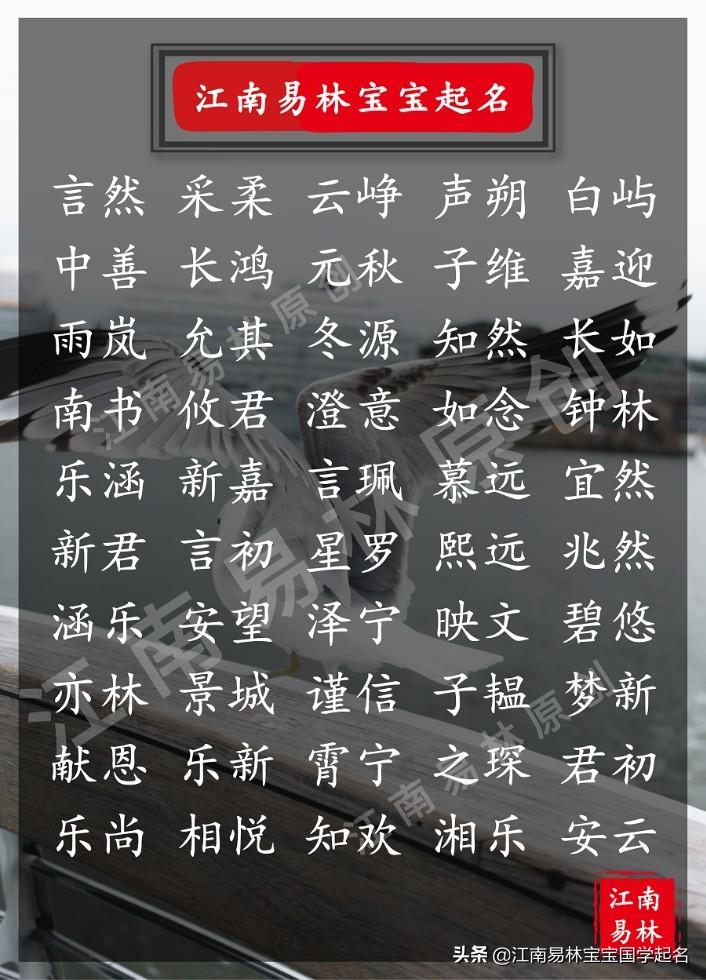 江南易林宝宝起名
言然 采柔 云峥 声朔 白屿
中善 长鸿 元秋 子维 嘉迎
雨岚 允其 冬源 知然 长如
南书 攸君 澄意 如念 钟林
乐涵 新嘉 言珮 慕远 宜然
新君 言初 星罗 熙远 兆然
涵乐 安望 泽宁 映文 碧悠
亦林 景城 谨信 子韫 梦新
献恩 乐新 霄宁 之琛 君初
乐尚 相悦 知欢 湘乐 安云
江南易林原创
江南易林原创
江南易林原创
江南
易林
头条 @江南易林宝宝国学起名